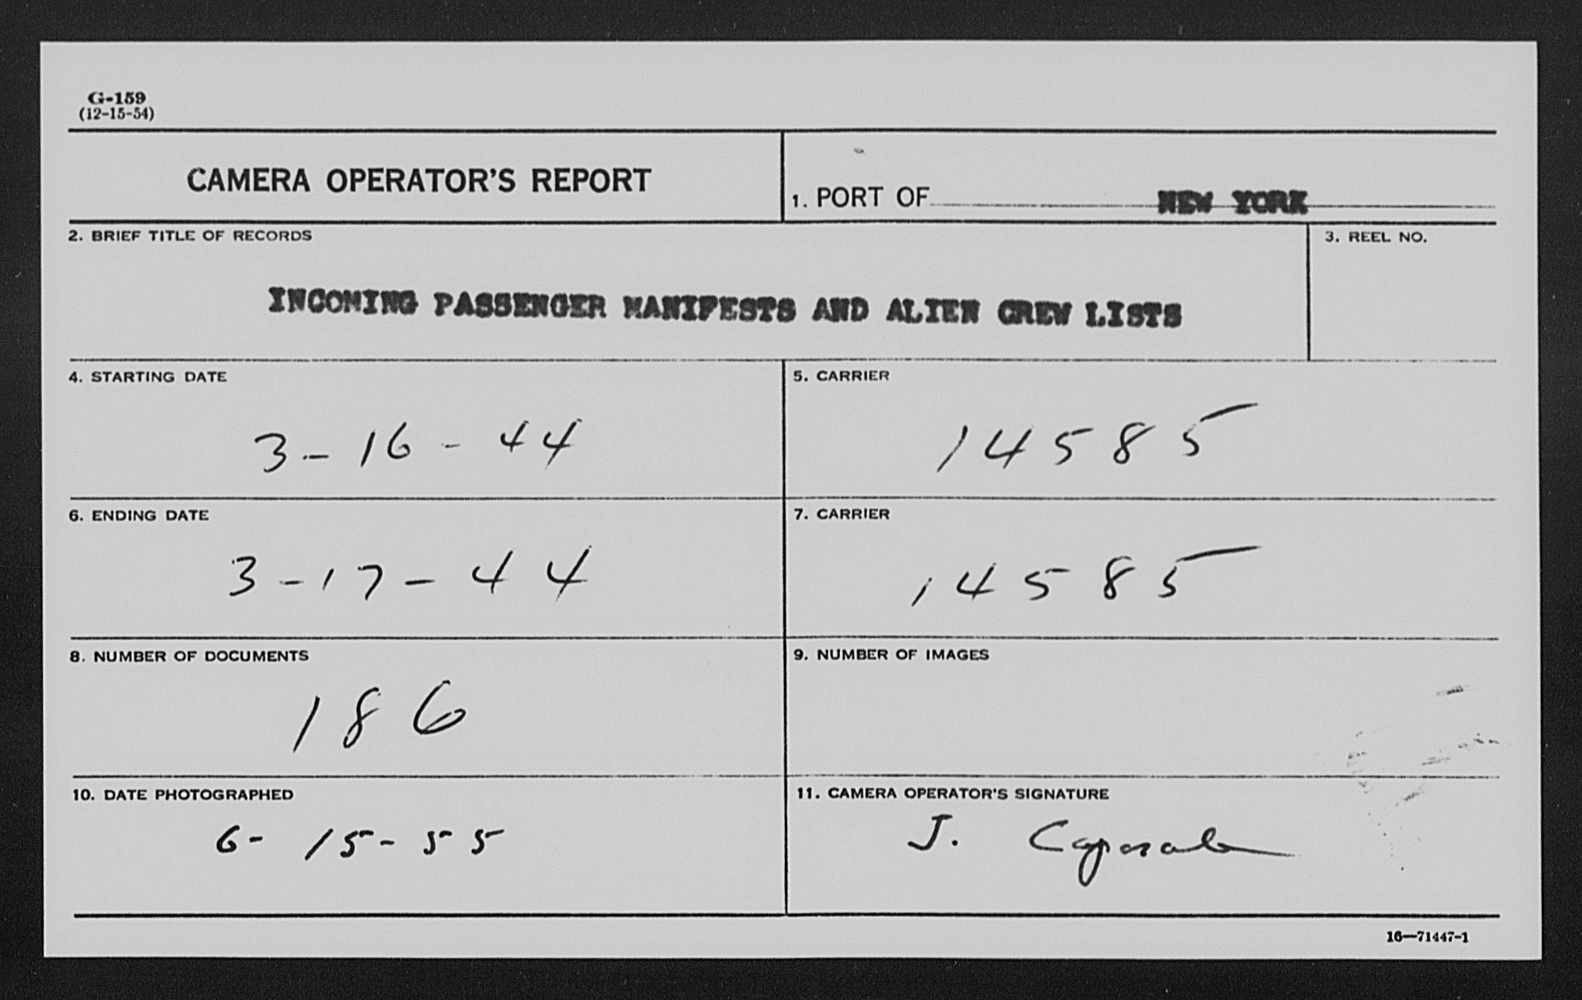 G-159
(12-15-54)
CAMERA OPERATOR'S REPORT
1. PORT OF NEW YORK
2. BRIEF TITLE OF RECORDS
3. REEL NO.
INCOMING PASSENGER MANIFESTS AND ALIEN CREW LISTS
4. STARTING DATE
5. CARRIER
3-16-44
14585
6. ENDING DATE
7. CARRIER
3-17-44
14585
8. NUMBER OF DOCUMENTS
9. NUMBER OF IMAGES
186
10. DATE PHOTOGRAPHED
11. CAMERA OPERATOR'S SIGNATURE
6-15-55
J.
16—71447-1